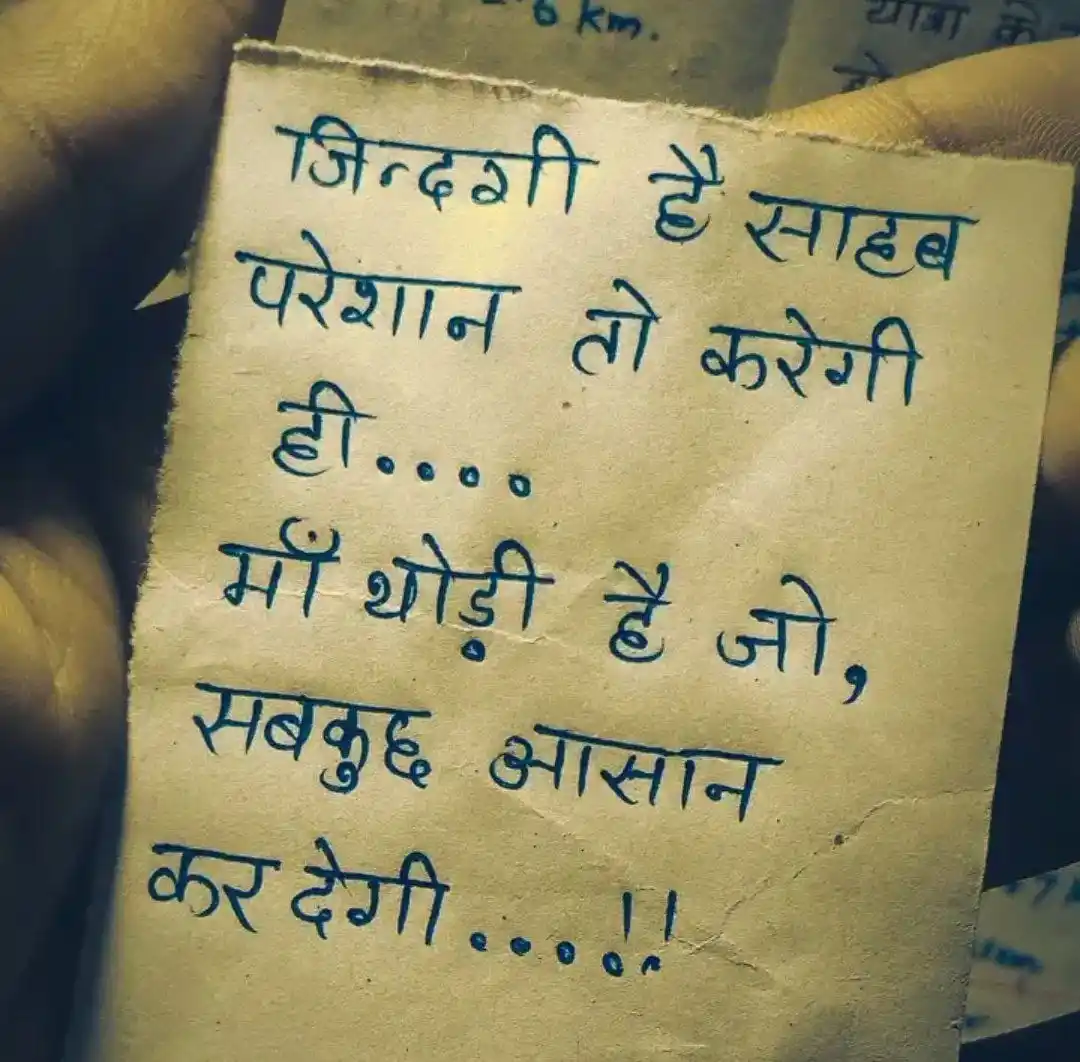 6 km.
यात्रा के
जिन्दगी है साहब
परेशान तो करेगी
ही....
माँ थोड़ी है जो,
सबकुछ आसान
कर देगी....!!